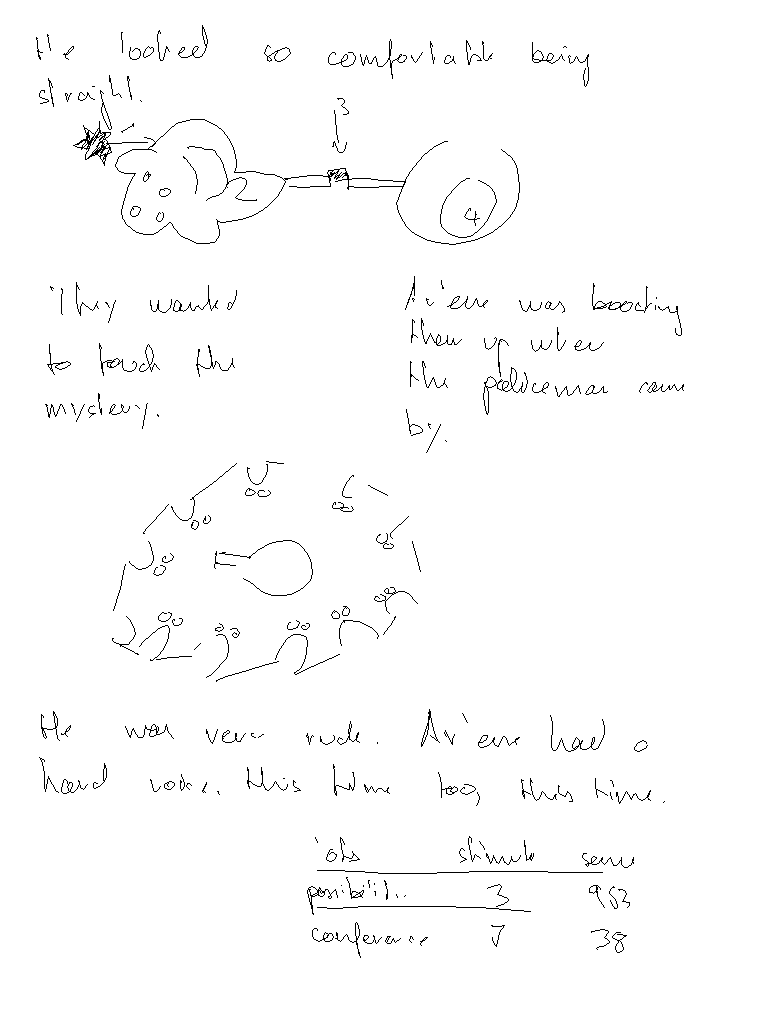 He looked so comfortable being
straight.
3
2
4
They wanted
to touch the
mystery.
Av'ene was boosting
them up when
the policeman came
by.
He was very rude. Av'ene had a
hard voice. this time too, this time.
stimule sense
3 953
conference 7 38